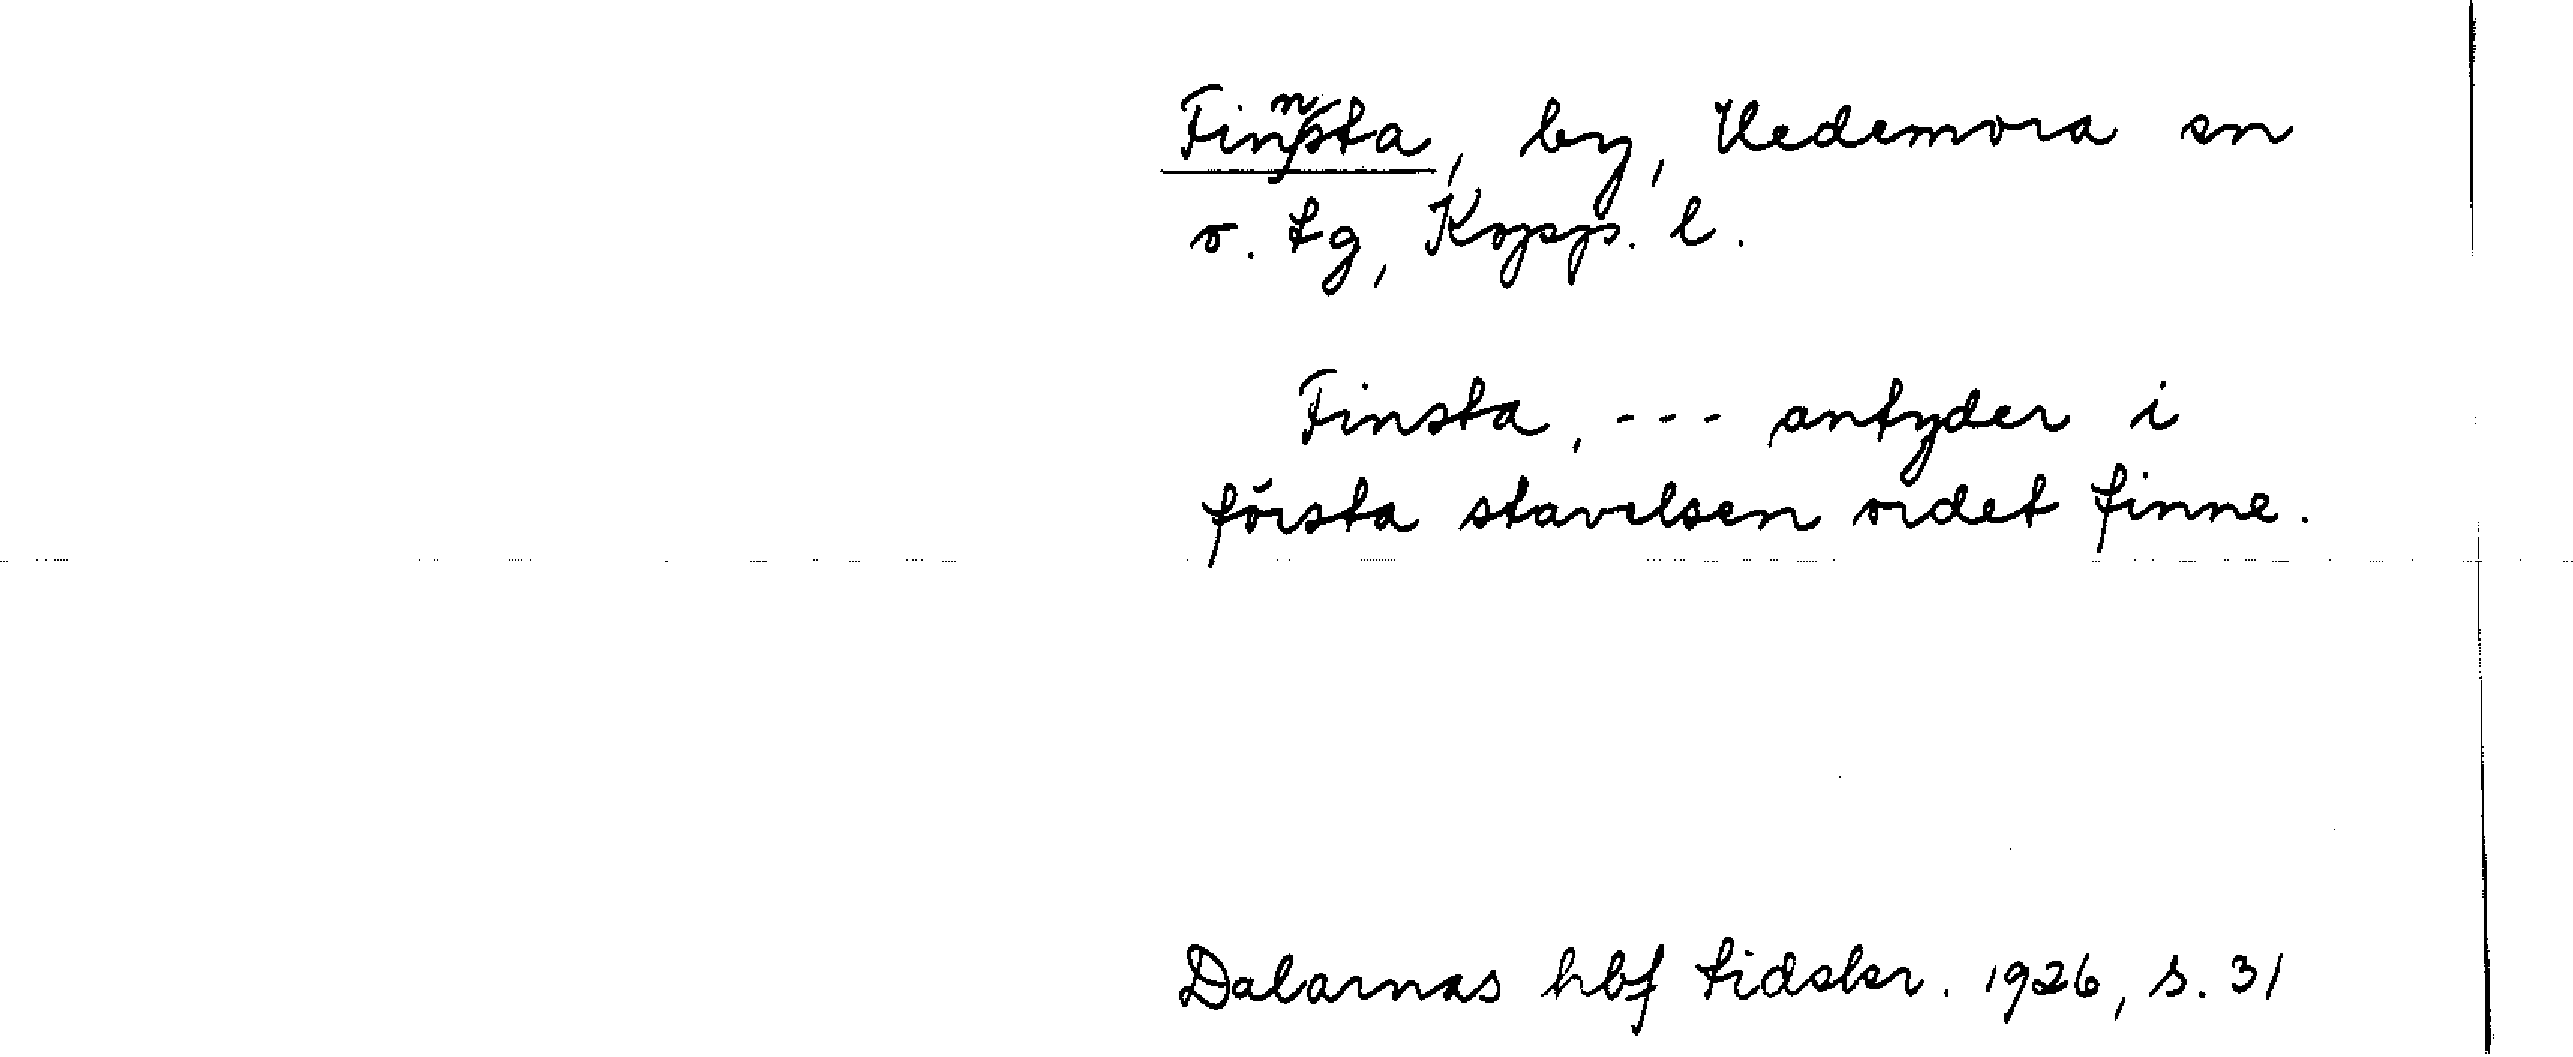 Finnsta, by, Hedemora sn
o. tg, Kopp. l.
Finsta, --- antyder i
första stavelsen ordet finne.
Dalarnas hbf tidskr. 1926, s. 31